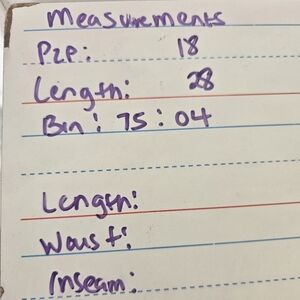 Measurements
P2P: 18
Length: 28
Bin: 75:04
Length:
Waist:
Inseam: